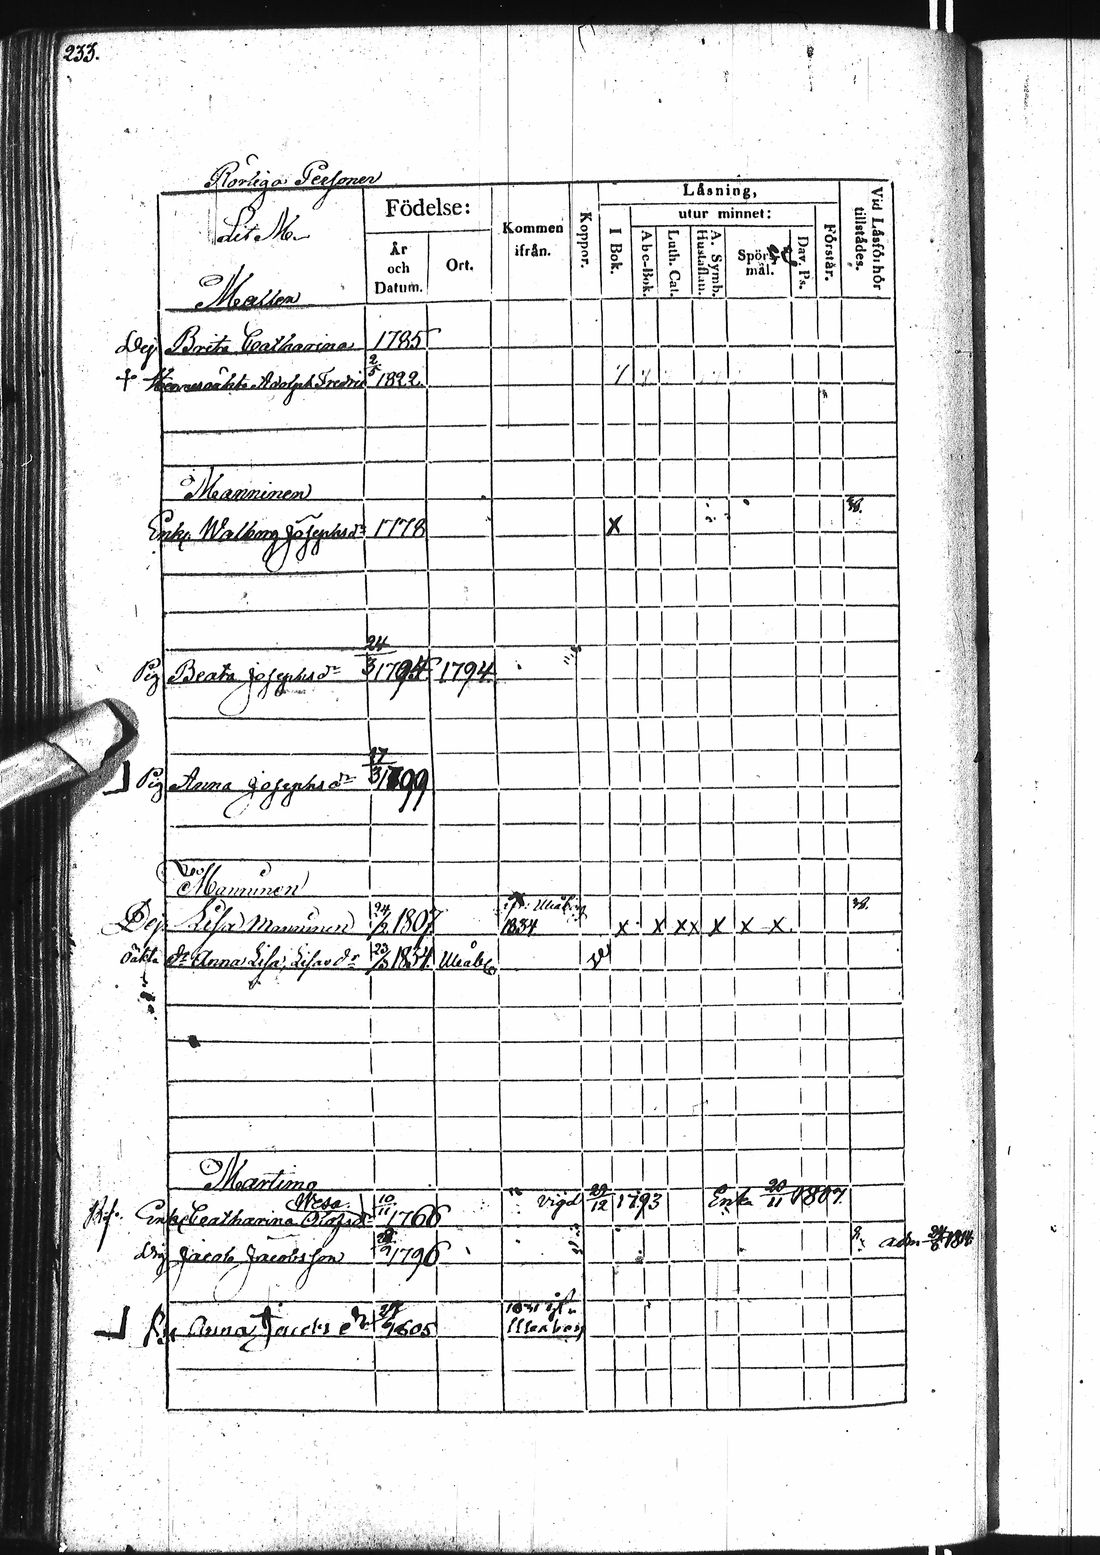 233.
Rörliga Personer
Lit M.
Födelse:
År och Datum.
Ort.
Kommen ifrån.
Koppor.
Läsning,
I Bok.
utur minnet:
Abc-Bok.
Luth. Cat.
A. Symb. Hustaflan.
Spörsmål.
Dav. Ps.
Förstår.
Vid Läsförhör tillstädes.
Mallen
Dej Brita Catharina 1785
† Adolph Fredric 2/5 1822.
Manninen
Enk. Walborg Josephsdr 1778 X 38.
Pig Beata Josephsdr 24/3 1794 1794.
Pig Anna Josephsdr 17/3 1799
Manninen
Dej. Lisa Manninen 24/2 1807 ifr. Uleåborg 1834 x x xx x x x 38.
oäkta dr Anna Lisa, Lisasdr 23/2 1834. Uleåb
Martimo
Wesa
Enk. Catharina Olofsdr 10/11 1766 Vigd 29/12 1793 Enka 20/11 1807
Drg Jacob Jacobsson 1796
Anna Jacobsdr 1805 1831